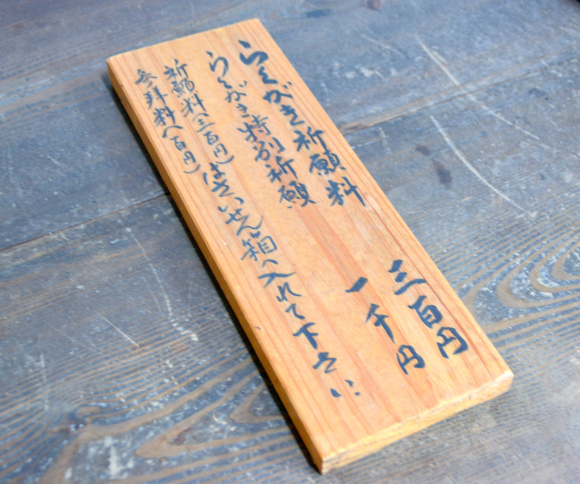 らくがき祈願料 三百円
らくがき特別祈願 一千円
祈願料(三百円)はさいせん箱へ入れて下さい
参拝料(百円)